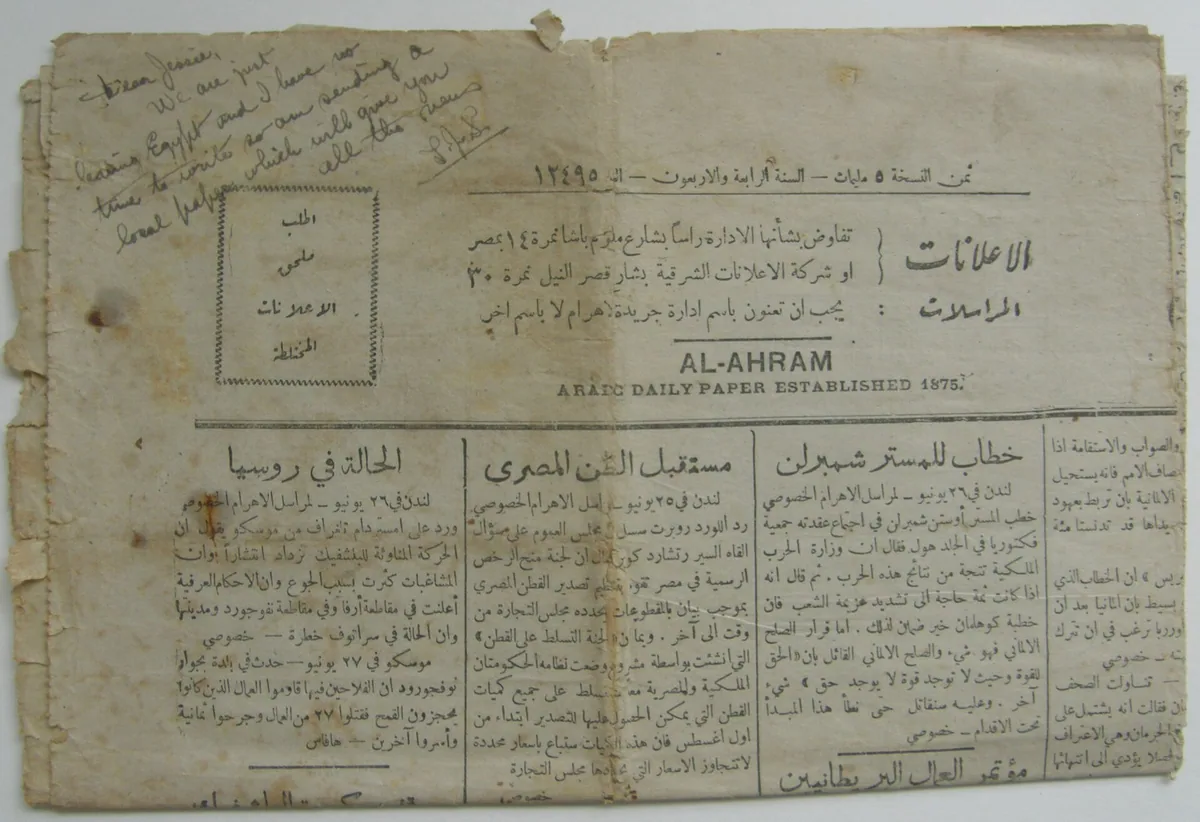 Dear Jessie,
We are just
leaving Egypt and I have no
time to write so am sending a
local paper which will give you
all the news
ثمن النسخة ٥ مليمات — السنة الرابعة والاربعون — ١٢٤٩٥
الاعلانات
تفاوض بشأنها الادارة رأساً بشارع مظلوم باشا نمرة ١٤ بمصر
او شركة الاعلانات الشرقية بشارع قصر النيل نمرة ٣٠
المراسلات : يجب ان تعنون باسم ادارة جريدة الاهرام لا باسم آخر
اطلب
ملحق
الاعلانات
المختلطة
AL-AHRAM
ARABIC DAILY PAPER ESTABLISHED 1875.
والصواب والاستقامة اذا
الامم فانه يستحيل
الالمانية بان تربط بعهود
قد تدنستا مئة
ان الخطاب الذي
بسيط بان المانيا بعد ان
ترغب في ان تترك
— خصوصي
— تناولت الصحف
فقالت انه يشتمل على
وهي الاعتراف
يؤدي الى انتهائها
خطاب للمستر شمبرلن
لندن في ٢٦ يونيو — لمراسل الاهرام الخصوصي
خطب المستر أوستن شمبرلن في اجتماع عقدته جمعية
فكتوريا في الجلد هول فقال ان وزارة الحرب
الملكية نتجة من نتائج هذه الحرب . ثم قال انه
اذا كانت ثمة حاجة الى تشديد عزيمة الشعب فان
خطبة كوهلمان خير ضمين لذلك . اما قرار الصلح
الالماني فهو شيء والصلح الالماني القائل بان «الحق
للقوة وحيث لا توجد قوة لا يوجد حق » شيء
آخر . وعليه سنقاتل حتى نطأ هذا المبدأ
تحت الاقدام — خصوصي
مؤتمر العمال البريطانيين
مستقبل القطن المصري
لندن في ٢٥ يونيو — لمراسل الاهرام الخصوصي
رد اللورد روبرت سسل في مجلس العموم على سؤال
القاه السير رتشارد كوبر فقال ان لجنة منح الرخص
الرسمية في مصر تقوم بتنظيم تصدير القطن المصري
بموجب بيان بالمقطوعات يحدده مجلس التجارة من
وقت الى آخر . وبما ان « لجنة التسلط على القطن »
التي انشئت بواسطة مشروع وضعت نظامه الحكومتان
الملكية والمصرية معاً تتسلط على جميع كميات
القطن التي يمكن الحصول عليها للتصدير ابتداء من
اول أغسطس فان هذه الكميات ستباع باسعار محددة
لا تتجاوز الاسعار التي يحددها مجلس التجارة
خصوصي
الحالة في روسيا
لندن في ٢٦ يونيو — لمراسل الاهرام الخصوصي
ورد على امستردام تلغراف من موسكو يقول ان
الحركة المناوئة للبلشفيك تزداد انتشاراً وان
المشاغبات كثرت بسبب الجوع وان الاحكام العرفية
أعلنت في مقاطعة أرفا وفي مقاطعة نفوجورد ومدينتها
وان الحالة في سراتوف خطرة — خصوصي
موسكو في ٢٧ يونيو — حدث في بلدة بجوار
نوفجورود ان الفلاحين فيها قاوموا العمال الذين كانوا
يحجزون القمح فقتلوا ٢٧ من العمال وجرحوا ثمانية
وأسروا آخرين — هافاس